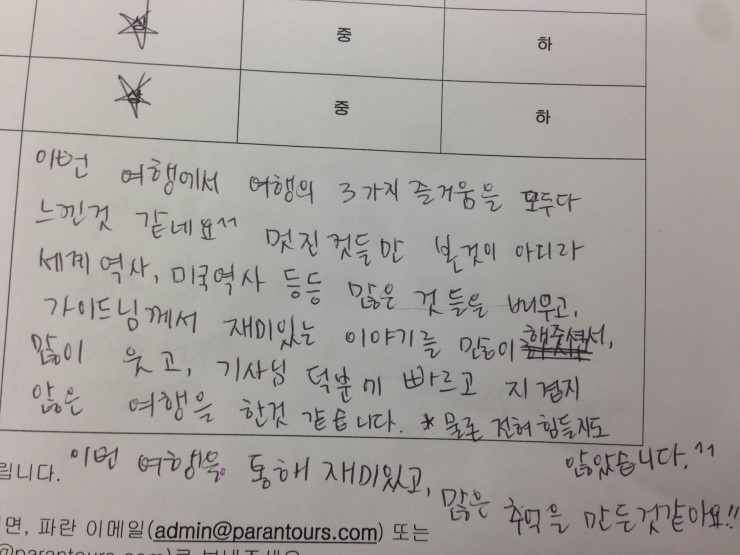 중 하
중 하
이번 여행에서 여행의 3가지 즐거움을 모두다
느낀것 같네요^^ 멋진 것들만 본것이 아니라
세계역사, 미국역사 등등 많은 것들을 배우고,
가이드님께서 재미있는 이야기를 많이 해주셔서,
많이 웃고, 기사님 덕분에 빠르고 지겹지
않은 여행을 한것 같습니다. * 물론 전혀 힘들지도
않았습니다.^^
립니다. 이번 여행을 통해 재미있고, 많은 추억을 만든것같아요!!
면, 파란 이메일(admin@parantours.com) 또는